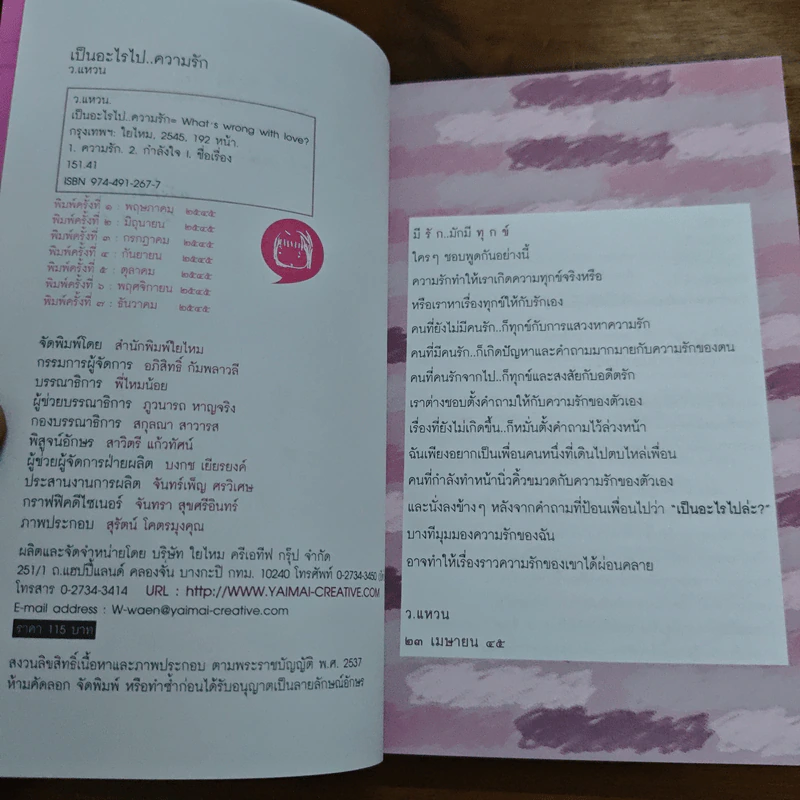 เป็นอะไรไป..ความรัก
ว.แหวน
ว.แหวน.
เป็นอะไรไป..ความรัก= What's wrong with love?
กรุงเทพฯ: ใยไหม, 2545. 192 หน้า.
1. ความรัก. 2. กำลังใจ I. ชื่อเรื่อง
151.41
ISBN 974-491-267-7
พิมพ์ครั้งที่ ๑ : พฤษภาคม ๒๕๔๕
พิมพ์ครั้งที่ ๒ : มิถุนายน ๒๕๔๕
พิมพ์ครั้งที่ ๓ : กรกฎาคม ๒๕๔๕
พิมพ์ครั้งที่ ๔ : กันยายน ๒๕๔๕
พิมพ์ครั้งที่ ๕ : ตุลาคม ๒๕๔๕
พิมพ์ครั้งที่ ๖ : พฤศจิกายน ๒๕๔๕
พิมพ์ครั้งที่ ๗ : ธันวาคม ๒๕๔๕
จัดพิมพ์โดย สำนักพิมพ์ใยไหม
กรรมการผู้จัดการ อภิสิทธิ์ กัมพลาวลี
บรรณาธิการ พี่ไหมน้อย
ผู้ช่วยบรรณาธิการ ภูวนารถ หาญจริง
กองบรรณาธิการ สกุลณา สาวารส
พิสูจน์อักษร สาวิตรี แก้วทัศน์
ผู้ช่วยผู้จัดการฝ่ายผลิต บงกช เยียรยงค์
ประสานงานการผลิต จันทร์เพ็ญ ศรวิเศษ
กราฟฟิคดีไซเนอร์ จันทรา สุขศรีอินทร์
ภาพประกอบ สุรัตน์ โคตรมุงคุณ
ผลิตและจัดจำหน่ายโดย บริษัท ใยไหม ครีเอทีฟ กรุ๊ป จำกัด
251/1 ถ.แฮปปี้แลนด์ คลองจั่น บางกะปิ กทม. 10240 โทรศัพท์ 0-2734-3450
โทรสาร 0-2734-3414 URL : http://WWW.YAIMAI-CREATIVE.COM
E-mail address : W-waen@yaimai-creative.com
ราคา 115 บาท
สงวนลิขสิทธิ์เนื้อหาและภาพประกอบ ตามพระราชบัญญัติ พ.ศ. 2537
ห้ามคัดลอก จัดพิมพ์ หรือทำซ้ำก่อนได้รับอนุญาตเป็นลายลักษณ์อักษร
มี รั ก..มักมี ทุ ก ข์
ใครๆ ชอบพูดกันอย่างนี้
ความรักทำให้เราเกิดความทุกข์จริงหรือ
หรือเราหาเรื่องทุกข์ให้กับรักเอง
คนที่ยังไม่มีคนรัก..ก็ทุกข์กับการแสวงหาความรัก
คนที่มีคนรัก..ก็เกิดปัญหาและคำถามมากมายกับความรักของตน
คนที่คนรักจากไป..ก็ทุกข์และสงสัยกับอดีตรัก
เราต่างชอบตั้งคำถามให้กับความรักของตัวเอง
เรื่องที่ยังไม่เกิดขึ้น..ก็หมั่นตั้งคำถามไว้ล่วงหน้า
ฉันเพียงอยากเป็นเพื่อนคนหนึ่งที่เดินไปตบไหล่เพื่อน
คนที่กำลังทำหน้านิ่วคิ้วขมวดกับความรักของตัวเอง
และนั่งลงข้างๆ หลังจากคำถามที่ป้อนเพื่อนไปว่า "เป็นอะไรไปล่ะ?"
บางทีมุมมองความรักของฉัน
อาจทำให้เรื่องราวความรักของเขาได้ผ่อนคลาย
ว.แหวน
๒๓ เมษายน ๔๕